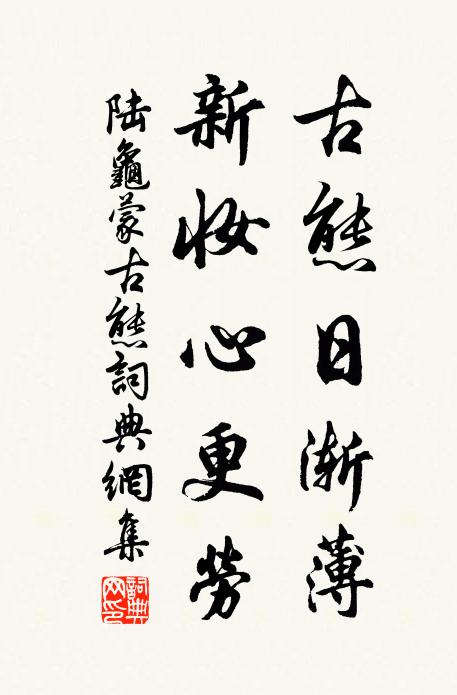 古態日漸薄
新妆心更勞
陸龜蒙古態詞典網集
詞典网印